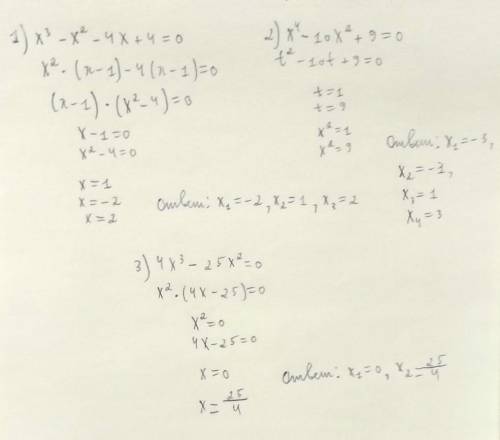 1) x³ - x² - 4x + 4 = 0
x² · (x-1) - 4(x-1) = 0
(x-1) · (x² - 4) = 0
x - 1 = 0
x² - 4 = 0
x = 1
x = -2
x = 2
Ответ: x₁ = -2, x₂ = 1, x₃ = 2
2) x⁴ - 10x² + 9 = 0
t² - 10t + 9 = 0
t = 1
t = 9
x² = 1
x² = 9
Ответ: x₁ = -3,
x₂ = -1,
x₃ = 1
x₄ = 3
3) 4x³ - 25x² = 0
x² · (4x - 25) = 0
x² = 0
4x - 25 = 0
x = 0
x = 25/4
Ответ: x₁ = 0, x₂ = 25/4